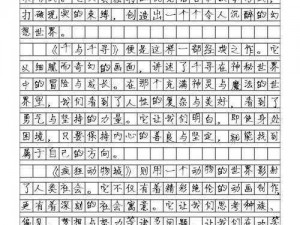 打破现实的束缚，创造出一个个令人沉醉的幻
想世界。
《千与千寻》便是这样一部经典之作。它
以细腻而奇幻的画面，讲述了千寻在神秘世界
中的冒险与成长。在那个充满神灵与魔法的世
界里，我们看到了人性的复杂与美好，看到了
勇气与坚持的力量。它让我们明白，即使身处
困境，只要保持内心的善良与坚定，就能找到
属于自己的方向。
《疯狂动物城》则用一个动物的世界影射
了人类社会。它不仅有着精彩绝伦的动画制作，
更有着深刻的社会寓意。它让我们思考种族、
偏见、梦想与努力等诸多问题，让我们在